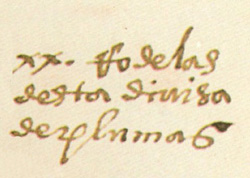 xx. Rodelas
desta diuisa
de plumas